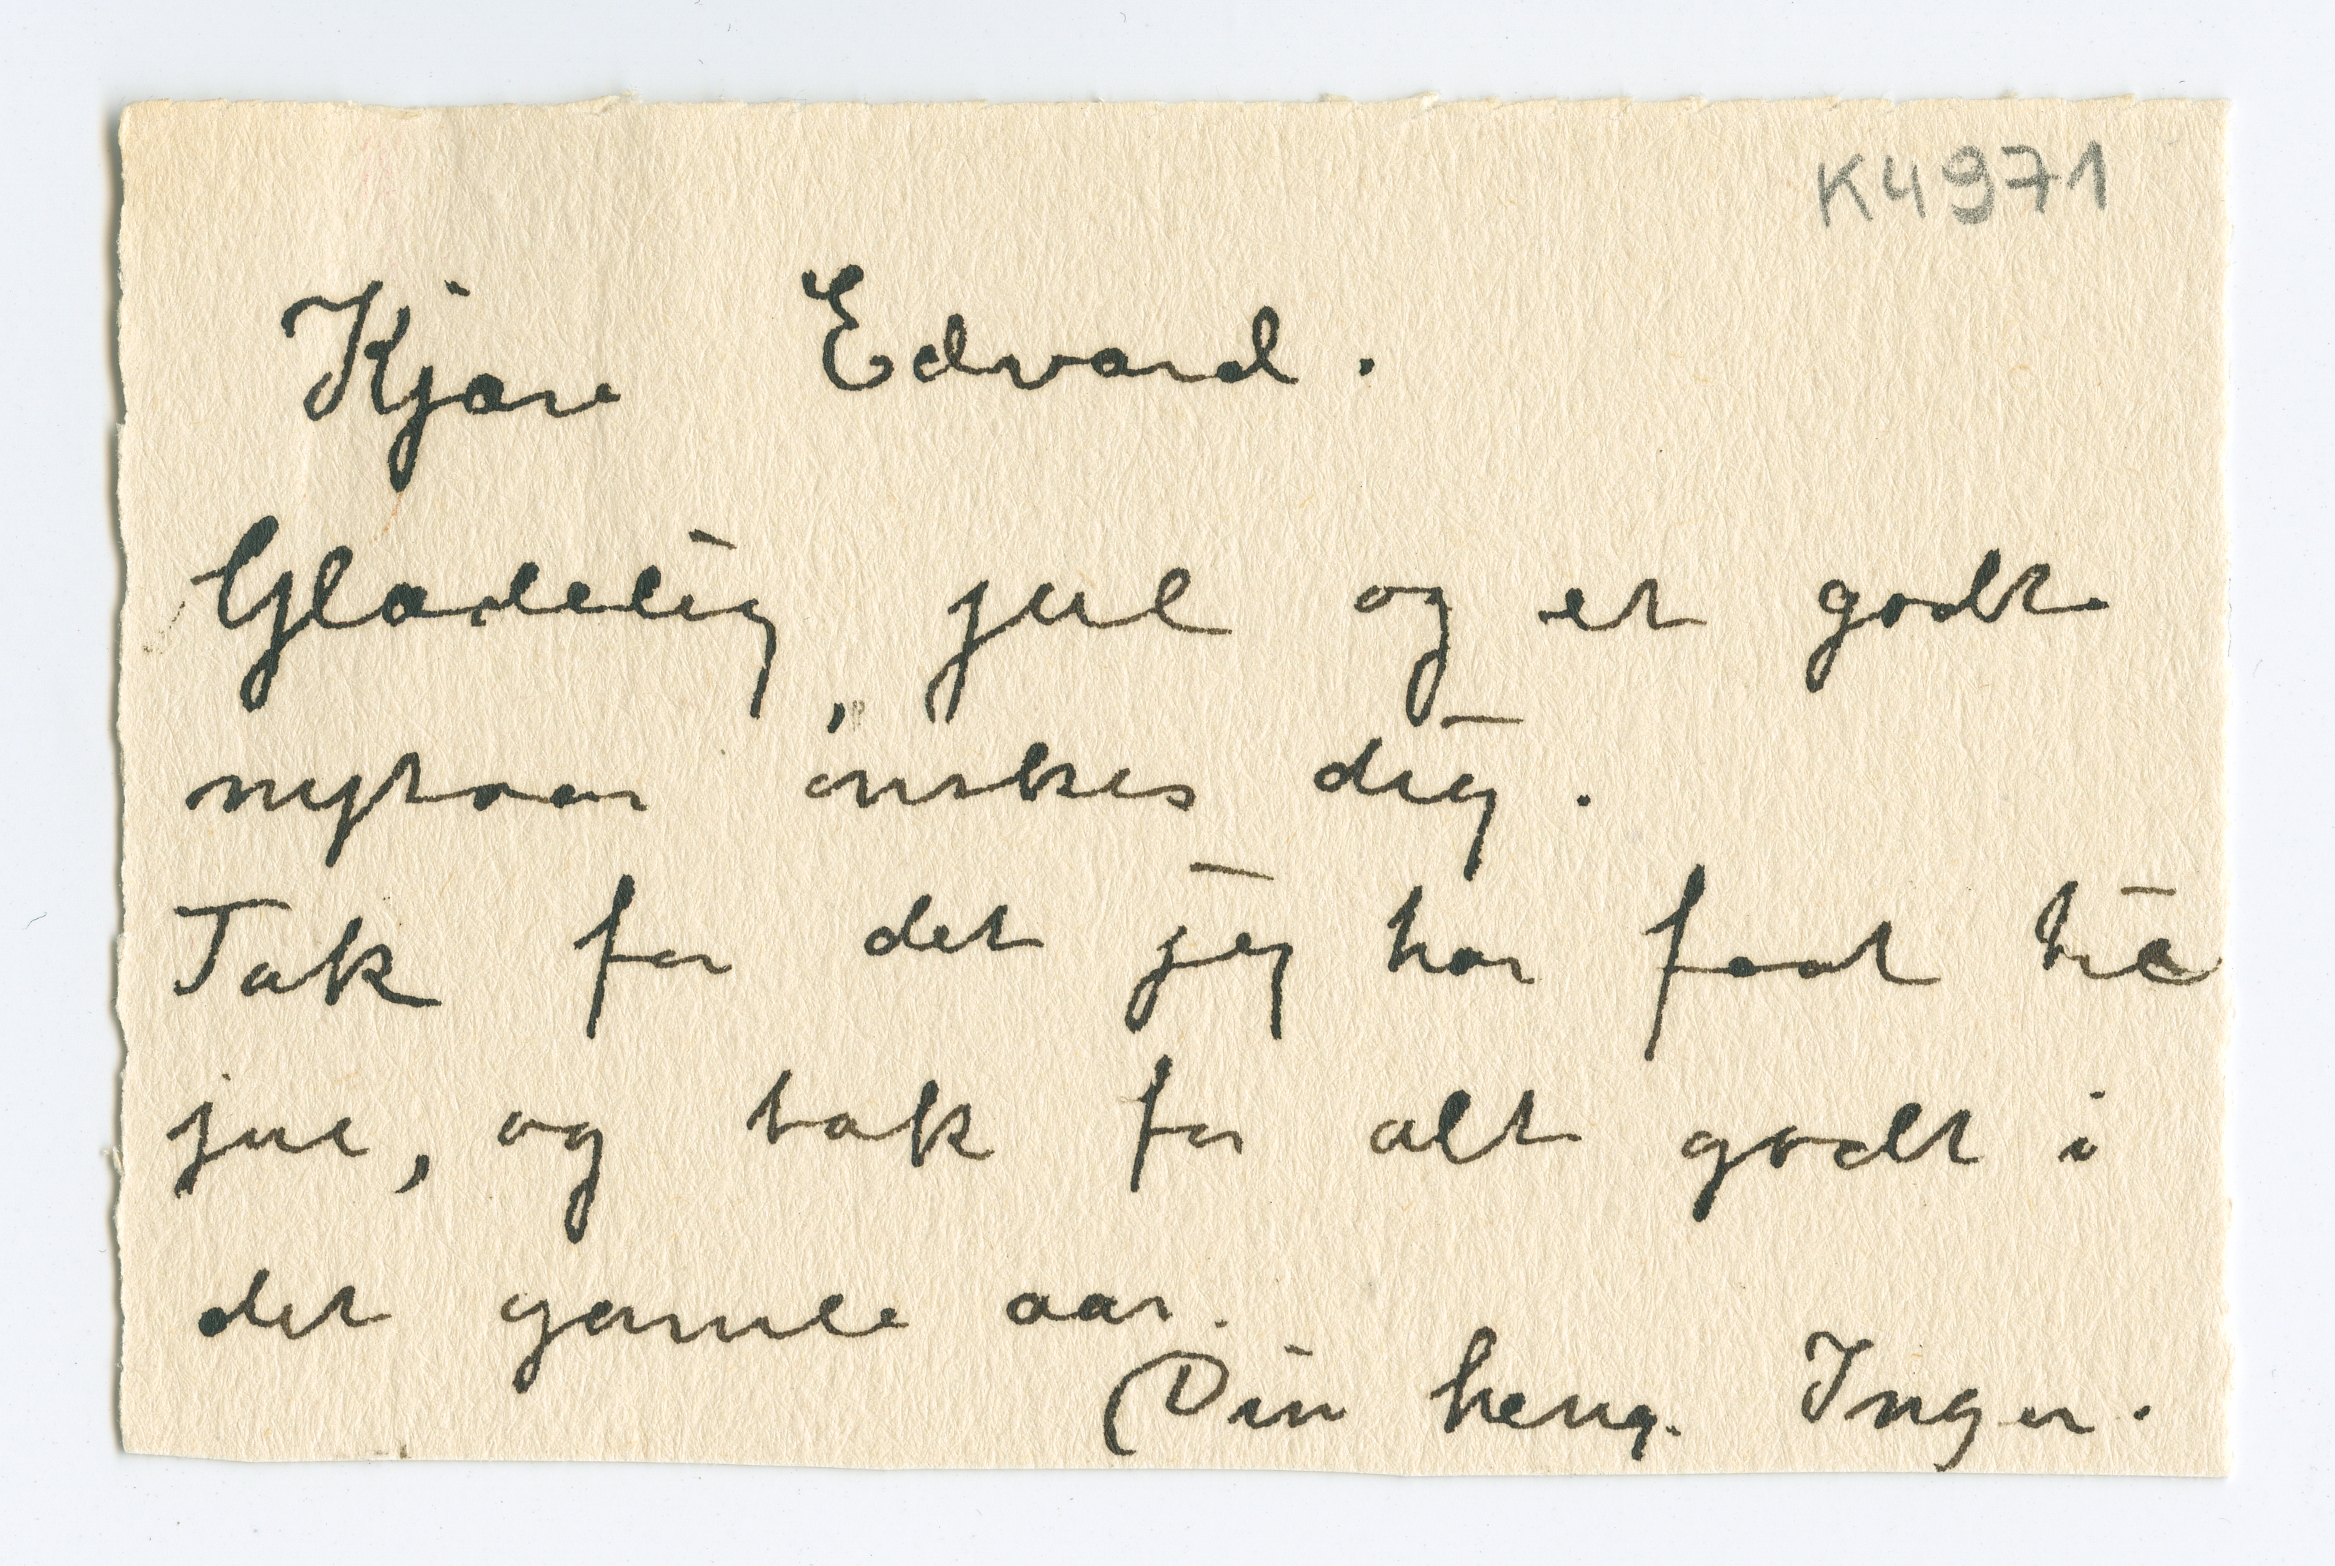 K4971
Kjære Edvard.
Glædelig jul og et godt
nytaar ønskes dig.
Tak for det jeg har faat til
jul, og tak for alt godt i
det gamle aar.
Din heng. Inger.